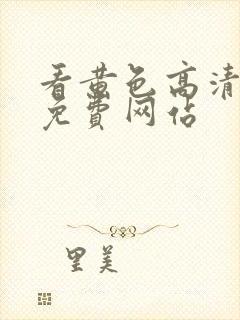 看黄色高清
免費网占
里美